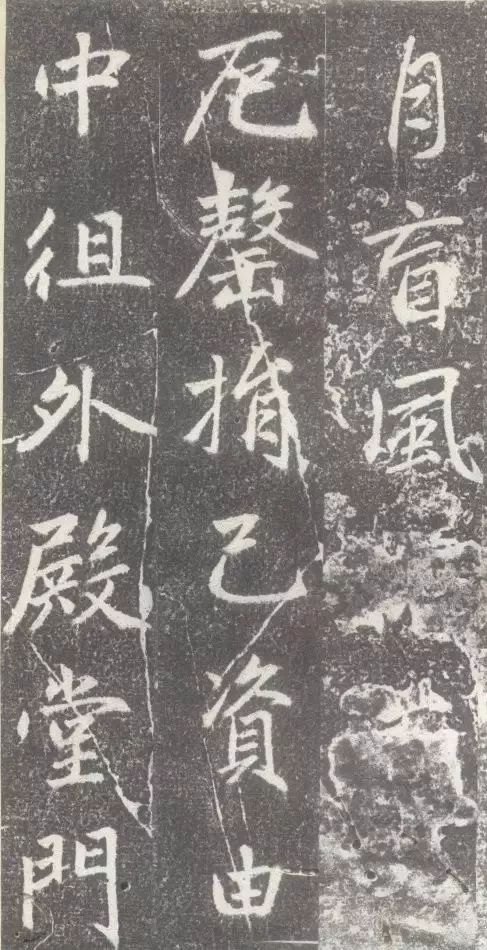 目盲風
厄罄捐己資由
中徂外殿堂門